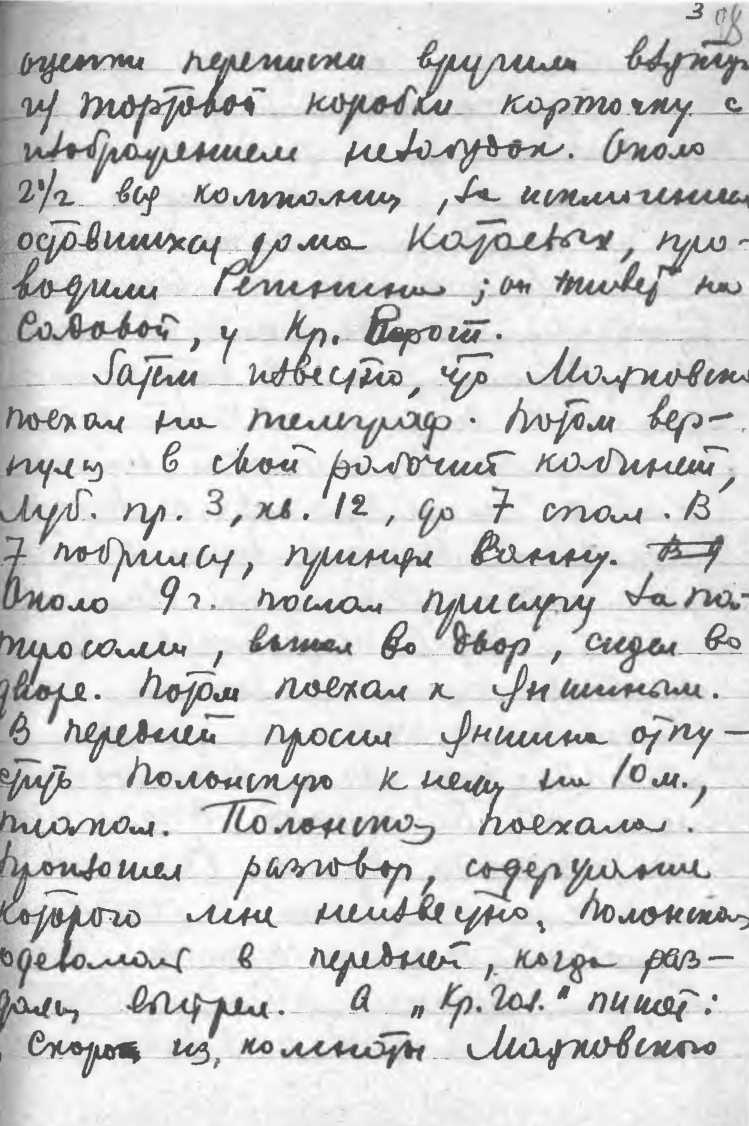 3 98
оценки переписки вручили
из тортовой коробки карточку с
изображением незабудок. Около
2 1/2 вся компания, за исключением
оставшихся дома Катаевых, про-
водили Регинина; он живет на
Садовой, у Кр. Ворот.
Затем известно, что Маяковский
поехал на телеграф. Потом вер-
нулся в свой рабочий кабинет,
Луб. пр. 3, кв. 12, до 7 спал. В
7 побрился, принял ванну.
Около 9 г. послал прислугу за па-
пиросами, вышел во двор, сидел во
дворе. Потом поехал к Яншиным.
В передней просил Яншина отпу-
стить Полонскую к нему на 10 м.,
плакал. Полонская поехала.
Произошел разговор, содержание
которого мне неизвестно, Полонская
одевалась в передней, когда раз-
дался выстрел. А „Кр. Газ.“ пишет:
Скоро из комнаты Маяковского